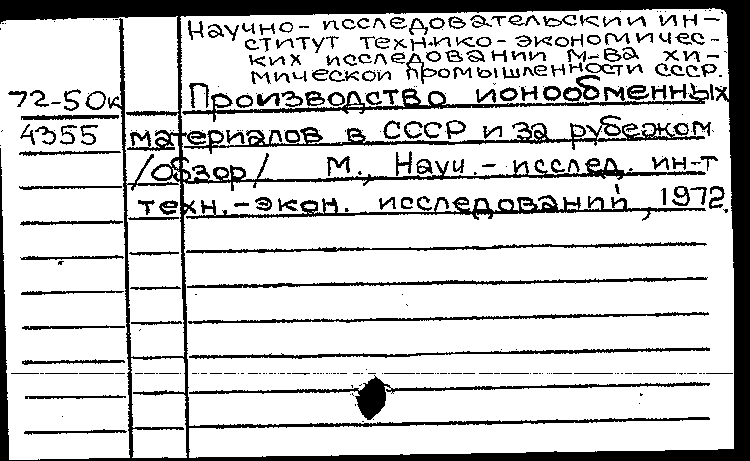 Научно-исследовательский ин-
ститут технико-экономичес-
ких исследований М-ва хи-
мической промышленности СССР.
72-50к Производство ионообменных
4355 материалов в СССР и за рубежом
/Обзор/ М., Науч.-исслед. ин-т
техн.-экон. исследований, 1972.